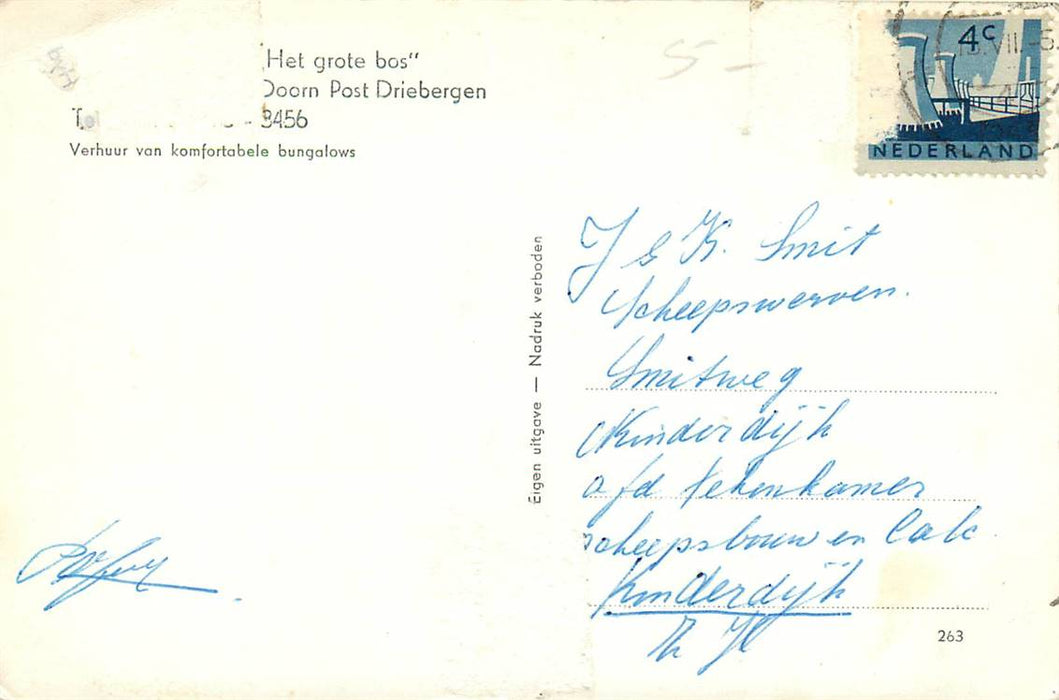 Het grote bos"
Doorn Post Driebergen
3456
Verhuur van komfortabele bungalows
5-
4c
NEDERLAND
Eigen uitgave — Nadruk verboden
J & K. Smit
Scheepswerven.
Smitweg
Kinderdijk
afd tekenkamer
scheepsbouw en Calc.
Kinderdijk
Z H
263